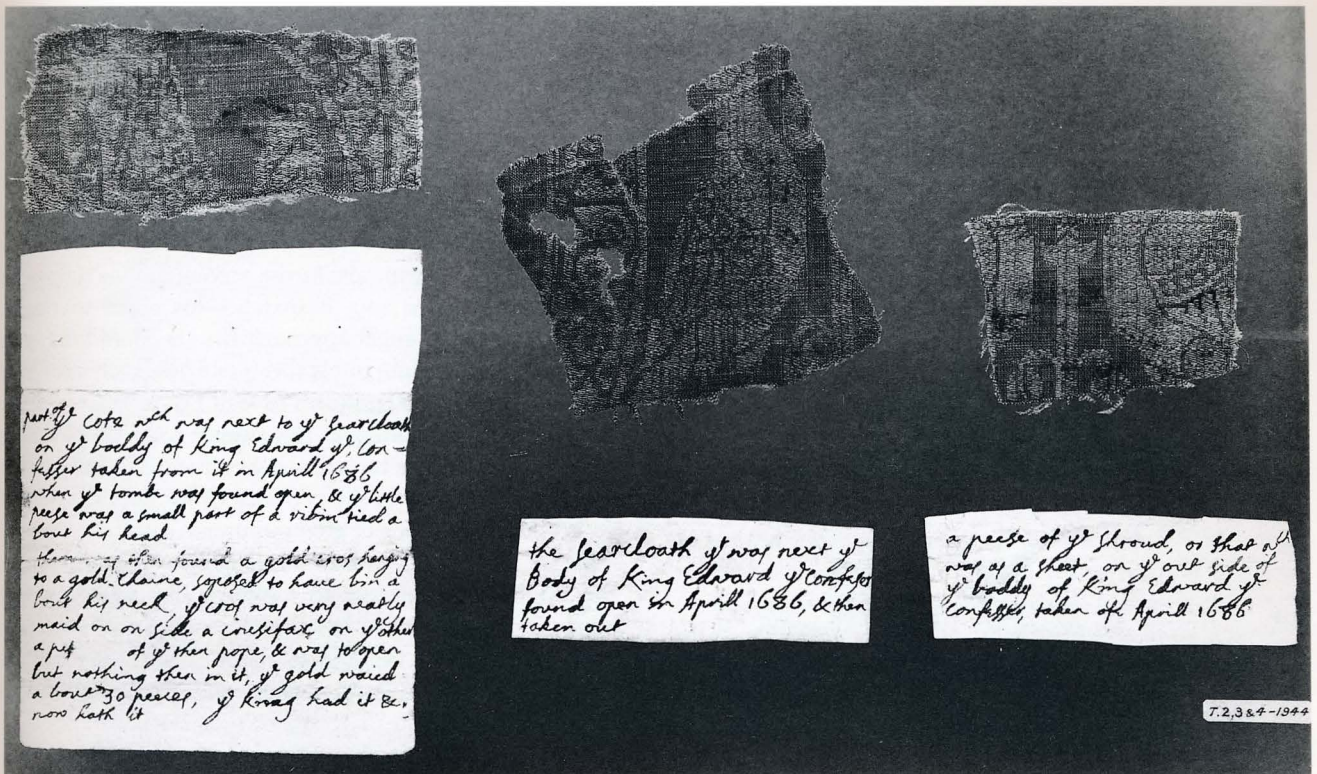 part of yͤ Cote wᶜʰ was next to yͤ Searcloath
on yͤ boddy of King Edward yͤ, Con=
fesser taken from it in Aprill 1686
when yͤ tombe was found open, & yͤ little
peese was a small part of a ribin tied a
bout his head
there was then found a gold cros hanging
to a gold Chaine, soposed to haue bin a
bout his neck, yͤ cros was very neatly
maid on on side a crusifax, on yͤ other
a of yͤ then pope, & was to open
but nothing then in it, yͤ gold waied
a bout 30 peeces, yͤ King had it &
now hath it
the Searcloath yͭ was next yͤ
Body of King Edward yͤ Confesor
found open in Aprill 1686, & then
taken out
a peese of yͤ Shroud, or that wᶜʰ
was as a sheet, on yͤ out side of
yͤ boddy of King Edward yͤ
Confesser, taken ofe Aprill 1686
T.2,3&4-1944